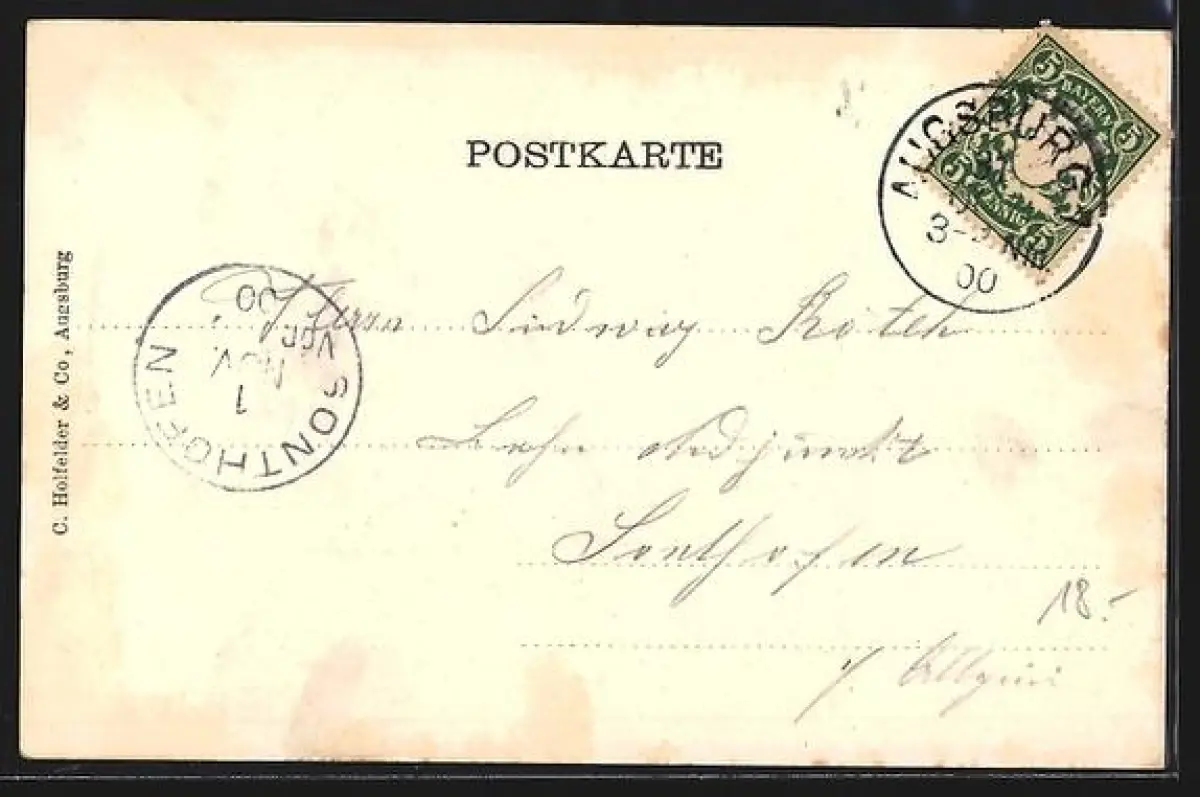 POSTKARTE
5 BAYERN 5
5 PFENNIG 5
AUGSBURG
3-5 NM
00
C. Holfelder & Co, Augsburg
SONTHOFEN
1
NOV.
VOR
00
Herrn Ludwig
Bahn Adjunkt
Sonthofen
18.-
i/ Allgäu